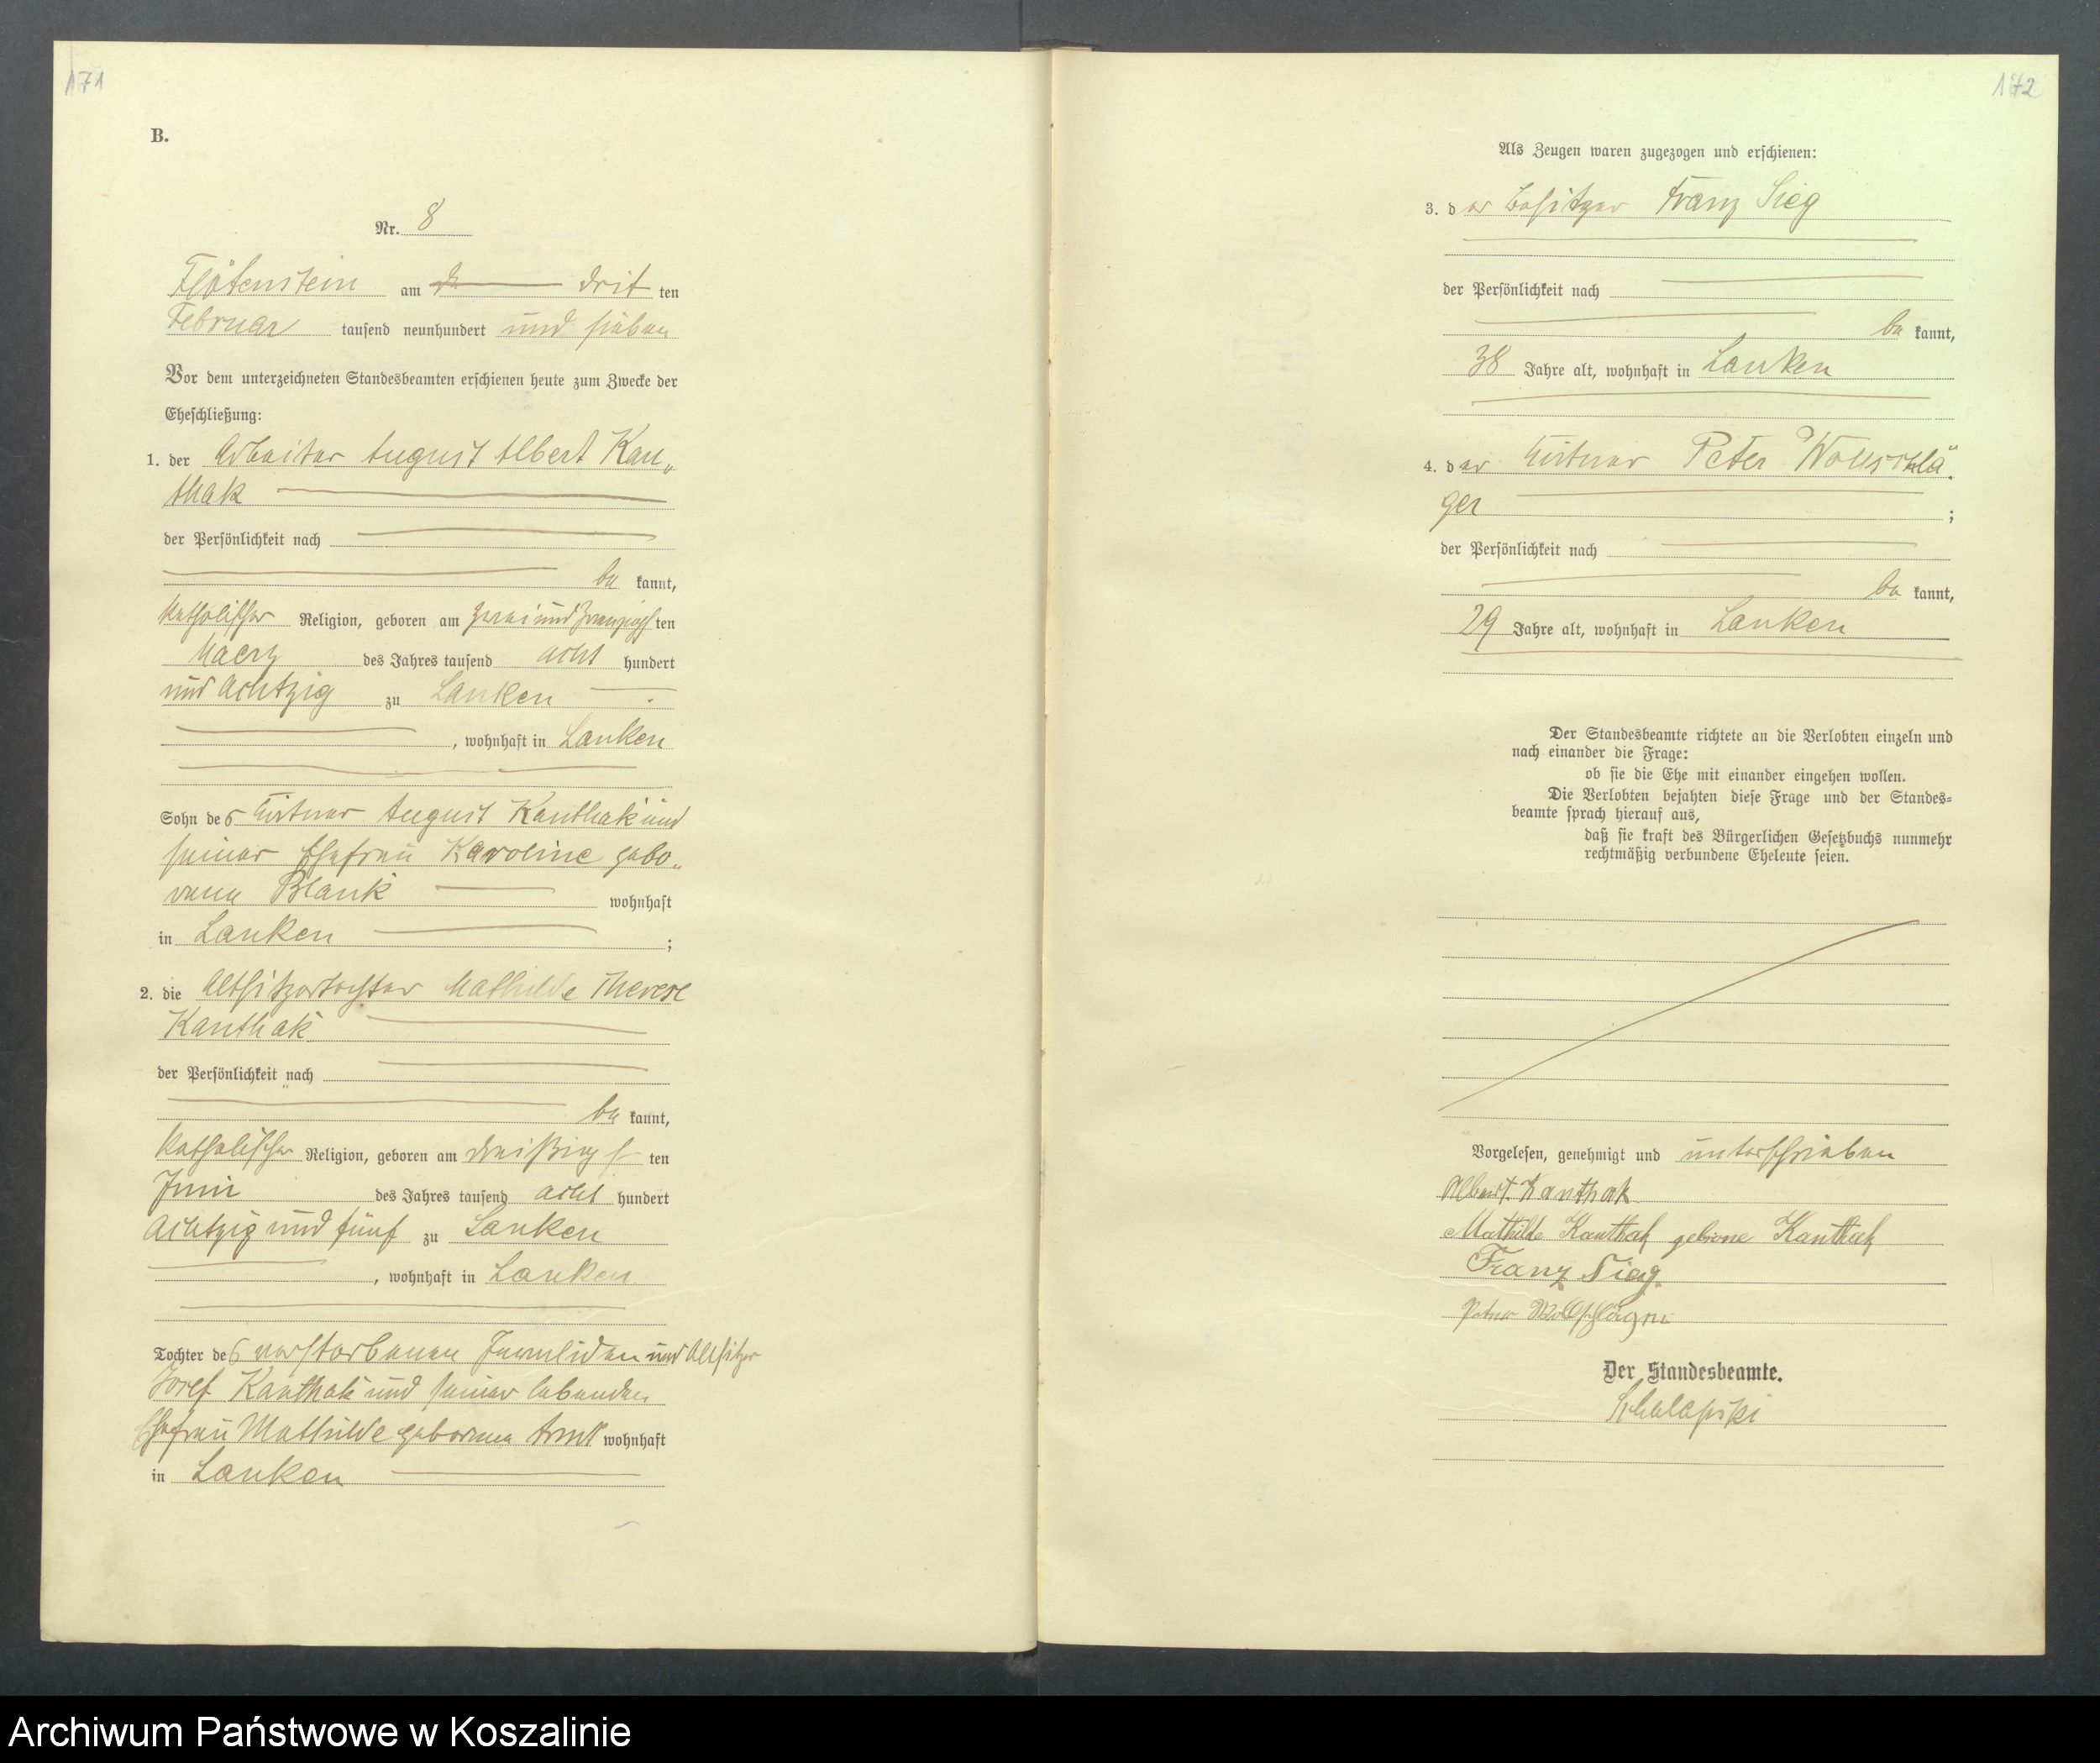 171
B.
Nr. 8
Flötenstein am drit ten
Februar tausend neunhundert und sieben
Vor dem unterzeichneten Standesbeamten erschienen heute zum Zwecke der
Eheschließung:
1. der Arbeiter August Albert Kan„
thak
der Persönlichkeit nach
be kannt,
katholischer Religion, geboren am zwei und zwanzigsten
Maerz des Jahres tausend acht hundert
und achtzig zu Lanken
, wohnhaft in Lanken
Sohn des August Kanthak und
seiner Ehefrau Karoline gebo„
rene Blank wohnhaft
in Lanken ;
2. die Altsitzertochter Mathilde Therese
Kanthak
der Persönlichkeit nach
be kannt,
katholischer Religion, geboren am dreißigs ten
Juni des Jahres tausend acht hundert
achtzig und fünf zu Lanken
, wohnhaft in Lanken
Tochter des verstorbenen Invaliden und Altsitzer
Josef Kanthak und seiner lebenden
Ehefrau Mathilde geborenen Arndt wohnhaft
in Lanken
172
Als Zeugen waren zugezogen und erschienen:
3. der Besitzer Franz Sieg
der Persönlichkeit nach
be kannt,
38 Jahre alt, wohnhaft in Lanken
4. der Peter Wollschlä„
ger ;
der Persönlichkeit nach
be kannt,
29 Jahre alt, wohnhaft in Lanken
Der Standesbeamte richtete an die Verlobten einzeln und
nach einander die Frage:
ob sie die Ehe mit einander eingehen wollen.
Die Verlobten bejahten diese Frage und der Standes=
beamte sprach hierauf aus,
daß sie kraft des Bürgerlichen Gesetzbuchs nunmehr
rechtmäßig verbundene Eheleute seien.
Vorgelesen, genehmigt und unterschrieben
Albert Kanthak
Mathilde Kanthak geborene Kanthak
Franz Sieg.
Peter Wollschläger
Der Standesbeamte.
Archiwum Państwowe w Koszalinie